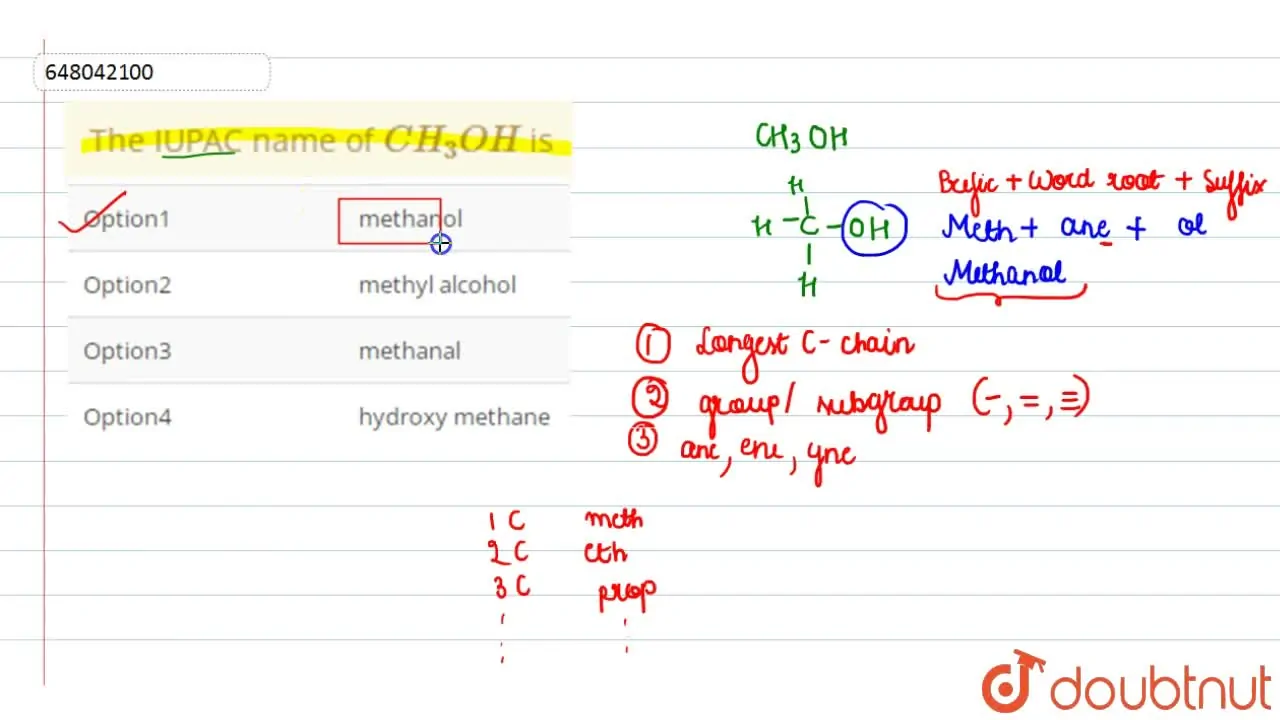 648042100
The IUPAC name of CH₃OH is
Option1 methanol
Option2 methyl alcohol
Option3 methanal
Option4 hydroxy methane
CH3 OH
H
H - C - OH
H
Prefix + Word root + Suffix
Meth + ane + ol
Methanol
① Longest C- chain
② group/ subgroup (-, =, ≡)
③ ane, ene, yne
1 C meth
2 C eth
3 C prop
doubtnut